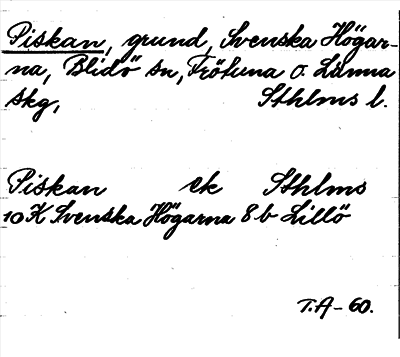 Piskan, grund, Svenska Högar-
na, Blidö sn, Frötuna o. Länna
skg, Sthlms l.
Piskan ek Sthlms
10 K Svenska Högarna 8 b Lillö
T.A-60.